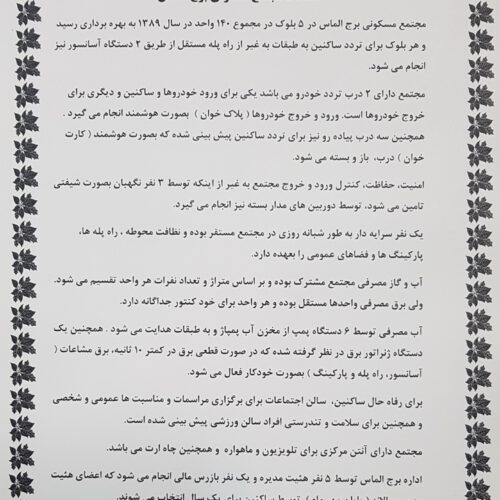 مجتمع مسکونی برج الماس در ۵ بلوک در مجموع ۱۴۰ واحد در سال ۱۳۸۹ به بهره برداری رسید
و هر بلوک برای تردد ساکنین به طبقات به غیر از راه پله مستقل از طریق ۲ دستگاه آسانسور نیز
انجام می شود.
مجتمع دارای ۲ درب تردد خودرو می باشد یکی برای ورود خودروها و ساکنین و دیگری برای
خروج خودروها است. ورود و خروج خودروها ( پلاک خوان ) بصورت هوشمند انجام می گیرد .
همچنین سه درب پیاده رو نیز برای تردد ساکنین پیش بینی شده که بصورت هوشمند ( کارت
خوان ) درب، باز و بسته می شود.
امنیت، حفاظت، کنترل ورود و خروج مجتمع به غیر از اینکه توسط ۳ نفر نگهبان بصورت شیفتی
تامین می شود، توسط دوربین های مدار بسته نیز انجام می گیرد.
یک نفر سرایه دار به طور شبانه روزی در مجتمع مستقر بوده و نظافت محوطه ، راه پله ها،
پارکینگ ها و فضاهای عمومی را بعهده دارد.
آب و گاز مصرفی مجتمع مشترک بوده و بر اساس متراژ و تعداد نفرات هر واحد تقسیم می شود.
ولی برق مصرفی واحدها مستقل بوده و هر واحد برای خود کنتور جداگانه دارد.
آب مصرفی توسط ۶ دستگاه پمپ از مخزن آب پمپاژ و به طبقات هدایت می شود . همچنین یک
دستگاه ژنراتور برق در نظر گرفته شده که در صورت قطعی برق در کمتر ۱۰ ثانیه، برق مشاعات (
آسانسور، راه پله و پارکینگ ) بصورت خودکار فعال می شود.
برای رفاه حال ساکنین، سالن اجتماعات برای برگزاری مراسمات و مناسبت ها عمومی و شخصی
و همچنین برای سلامت و تندرستی افراد سالن ورزشی پیش بینی شده است.
مجتمع دارای آنتن مرکزی برای تلویزیون و ماهواره و همچنین چاه ارت می باشد.
اداره برج الماس توسط ۵ نفر هئیت مدیره و یک نفر بازرس مالی انجام می شود که اعضای هئیت
توسط ساکنین برای یک سال انتخاب می شوند.